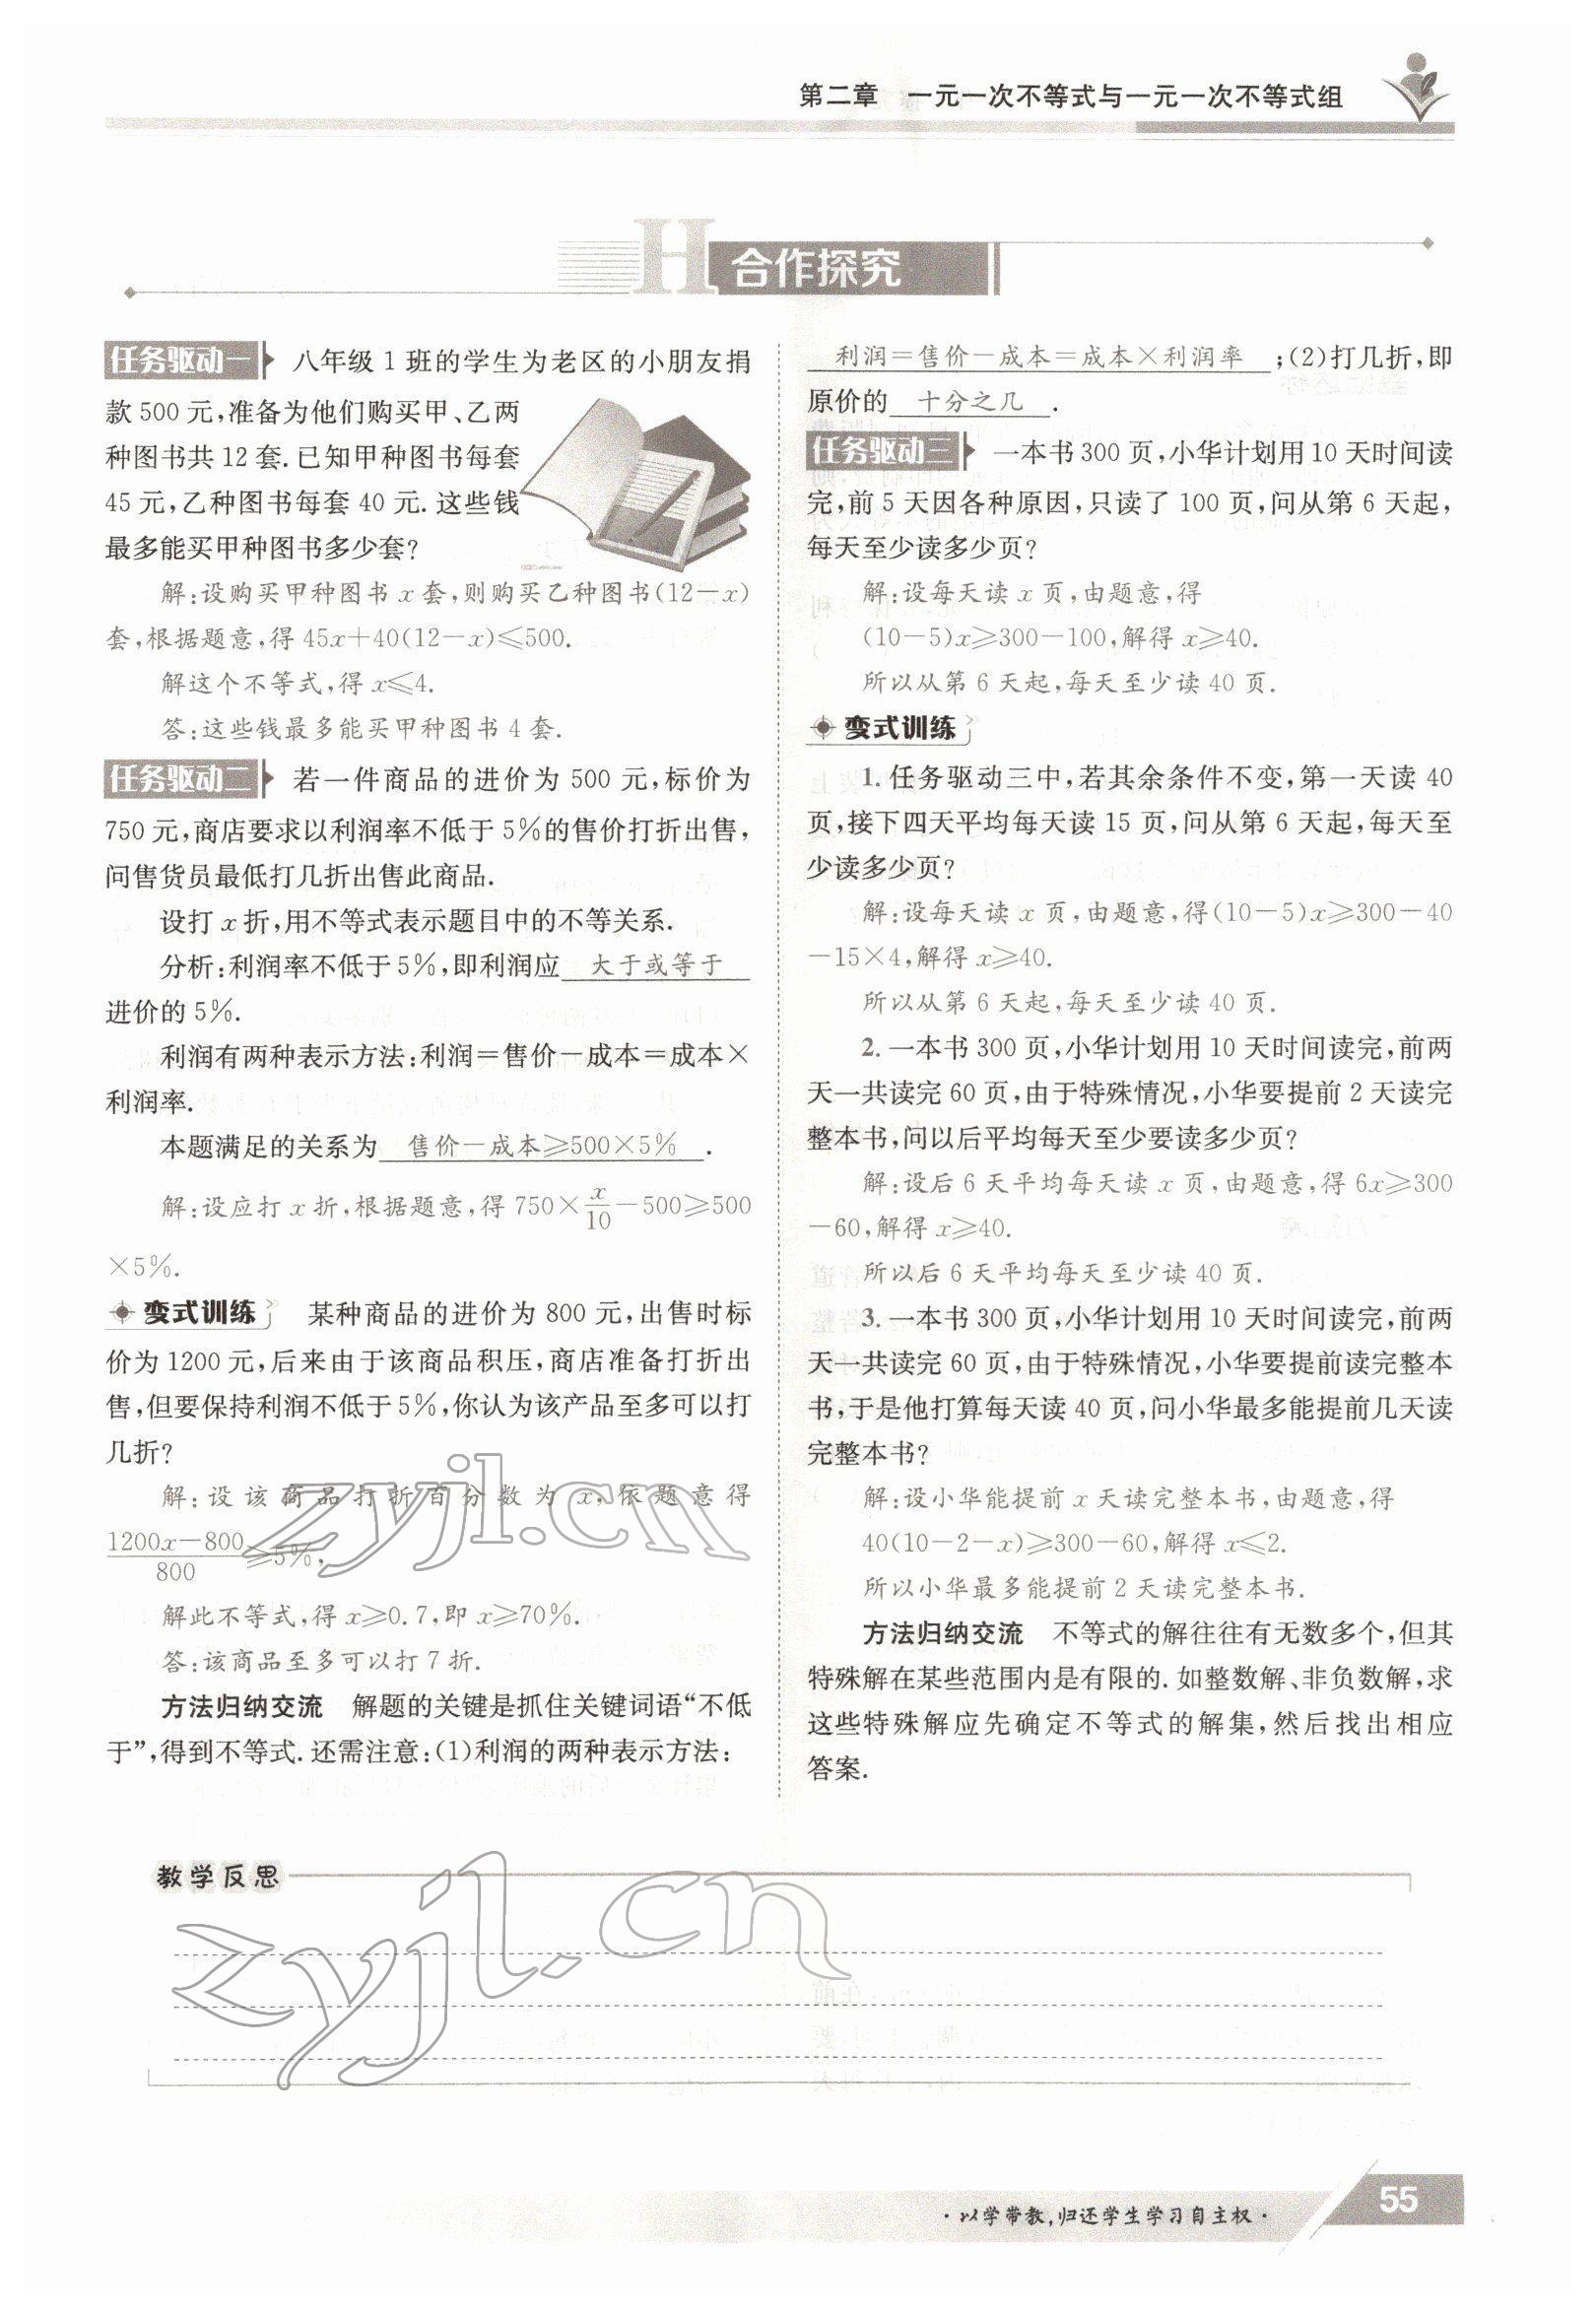 第二章 一元一次不等式与一元一次不等式组
H 合作探究
任务驱动一 八年级1班的学生为老区的小朋友捐
款500元,准备为他们购买甲、乙两
种图书共12套.已知甲种图书每套
45元,乙种图书每套40元.这些钱
最多能买甲种图书多少套?
解:设购买甲种图书x套,则购买乙种图书(12－x)
套,根据题意,得45x＋40(12－x)≤500.
解这个不等式,得x≤4.
答:这些钱最多能买甲种图书4套.
任务驱动二 若一件商品的进价为500元,标价为
750元,商店要求以利润率不低于5%的售价打折出售,
问售货员最低打几折出售此商品.
设打x折,用不等式表示题目中的不等关系.
分析:利润率不低于5%,即利润应 大于或等于
进价的5%.
利润有两种表示方法:利润＝售价－成本＝成本×
利润率.
本题满足的关系为 售价－成本≥500×5% .
解:设应打x折,根据题意,得750×x/10－500≥500
×5%.
变式训练 某种商品的进价为800元,出售时标
价为1200元,后来由于该商品积压,商店准备打折出
售,但要保持利润不低于5%,你认为该产品至多可以打
几折?
解:设该商品打折百分数为x,依题意得
(1200x－800)/800≥5%,
解此不等式,得x≥0.7,即x≥70%.
答:该商品至多可以打7折.
方法归纳交流 解题的关键是抓住关键词语“不低
于”,得到不等式.还需注意:(1)利润的两种表示方法:
利润＝售价－成本＝成本×利润率 ;(2)打几折,即
原价的 十分之几 .
任务驱动三 一本书300页,小华计划用10天时间读
完,前5天因各种原因,只读了100页,问从第6天起,
每天至少读多少页?
解:设每天读x页,由题意,得
(10－5)x≥300－100,解得x≥40.
所以从第6天起,每天至少读40页.
变式训练
1.任务驱动三中,若其余条件不变,第一天读40
页,接下四天平均每天读15页,问从第6天起,每天至
少读多少页?
解:设每天读x页,由题意,得(10－5)x≥300－40
－15×4,解得x≥40.
所以从第6天起,每天至少读40页.
2.一本书300页,小华计划用10天时间读完,前两
天一共读完60页,由于特殊情况,小华要提前2天读完
整本书,问以后平均每天至少要读多少页?
解:设后6天平均每天读x页,由题意,得6x≥300
－60,解得x≥40.
所以后6天平均每天至少读40页.
3.一本书300页,小华计划用10天时间读完,前两
天一共读完60页,由于特殊情况,小华要提前读完整本
书,于是他打算每天读40页,问小华最多能提前几天读
完整本书?
解:设小华能提前x天读完整本书,由题意,得
40(10－2－x)≥300－60,解得x≤2.
所以小华最多能提前2天读完整本书.
方法归纳交流 不等式的解往往有无数多个,但其
特殊解在某些范围内是有限的.如整数解、非负数解,求
这些特殊解应先确定不等式的解集,然后找出相应
答案.
zyjl.cn
教学反思
zyjl.cn
·以学带教,归还学生学习自主权·
55